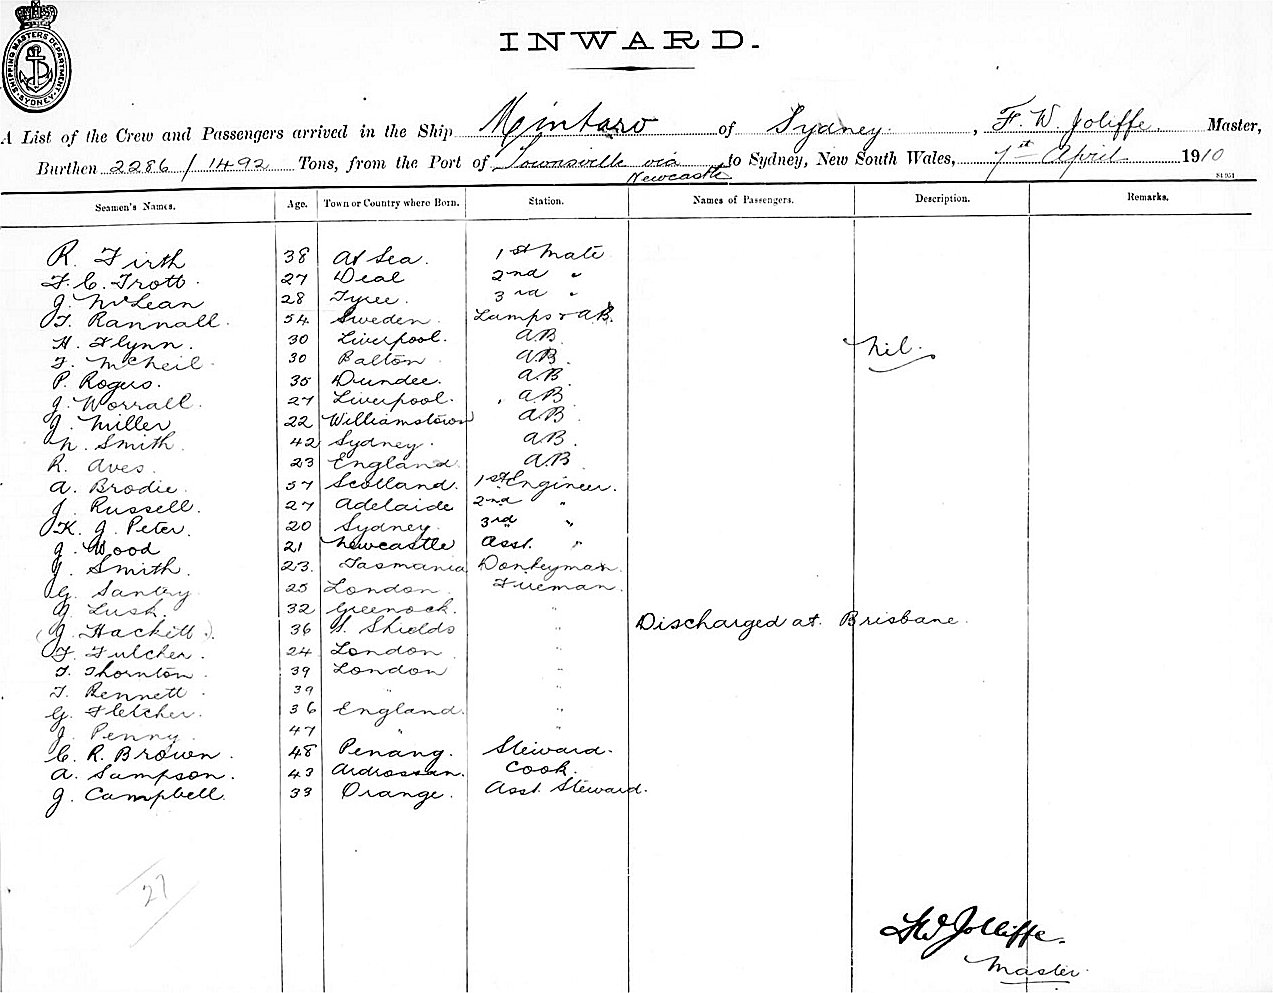 SHIPPING MASTERS DEPARTMENT SYDNEY
INWARD.
A List of the Crew and Passengers arrived in the Ship Mintaro of Sydney, F. W. Joliffe Master,
Burthen 2286/1492 Tons, from the Port of Townsville via Newcastle to Sydney, New South Wales, 7st April 1910
Seamen's Names. Age. Town or Country where Born. Station. Names of Passengers. Description. Remarks.
R. Firth 38 At Sea. 1st Mate
F. C. Trott. 27 Deal 2nd "
J. McLean 28 Tyree. 3rd "
T. Rannall. 54 Sweden. Lamps & A.B.
H. Flynn. 30 Liverpool. A.B. Nil.
F. McNeil. 30 Balton A.B.
P. Rogers. 35 Dundee. A.B
J. Worrall. 27 Liverpool. A.B
J. Miller 22 Williamstown A.B
N. Smith 42 Sydney. A.B.
R. Aves. 23 England A.B
A. Brodie. 57 Scotland. 1st Engineer.
J. Russell. 27 Adelaide 2nd "
K. J. Peter. 20 Sydney. 3rd "
J. Wood 21 Newcastle Asst. "
J. Smith. 23. Tasmania Donkeyman.
G. Santry 25 London. Fireman.
Lusk. 32 Greenock. "
(J. Hackett.) 36 Shields " Discharged at Brisbane.
F. Fulcher. 24 London "
T. Thornton. 39 London "
T. Bennett. 39 " "
G. Fletcher. 36 England. "
J. Penny. 47 " "
C. R. Brown. 48 Penang. Steward.
A. Sampson. 43 Ardrossan. Cook.
J. Campbell. 33 Orange. Asst. Steward.
27
FW Jolliffe.
Master